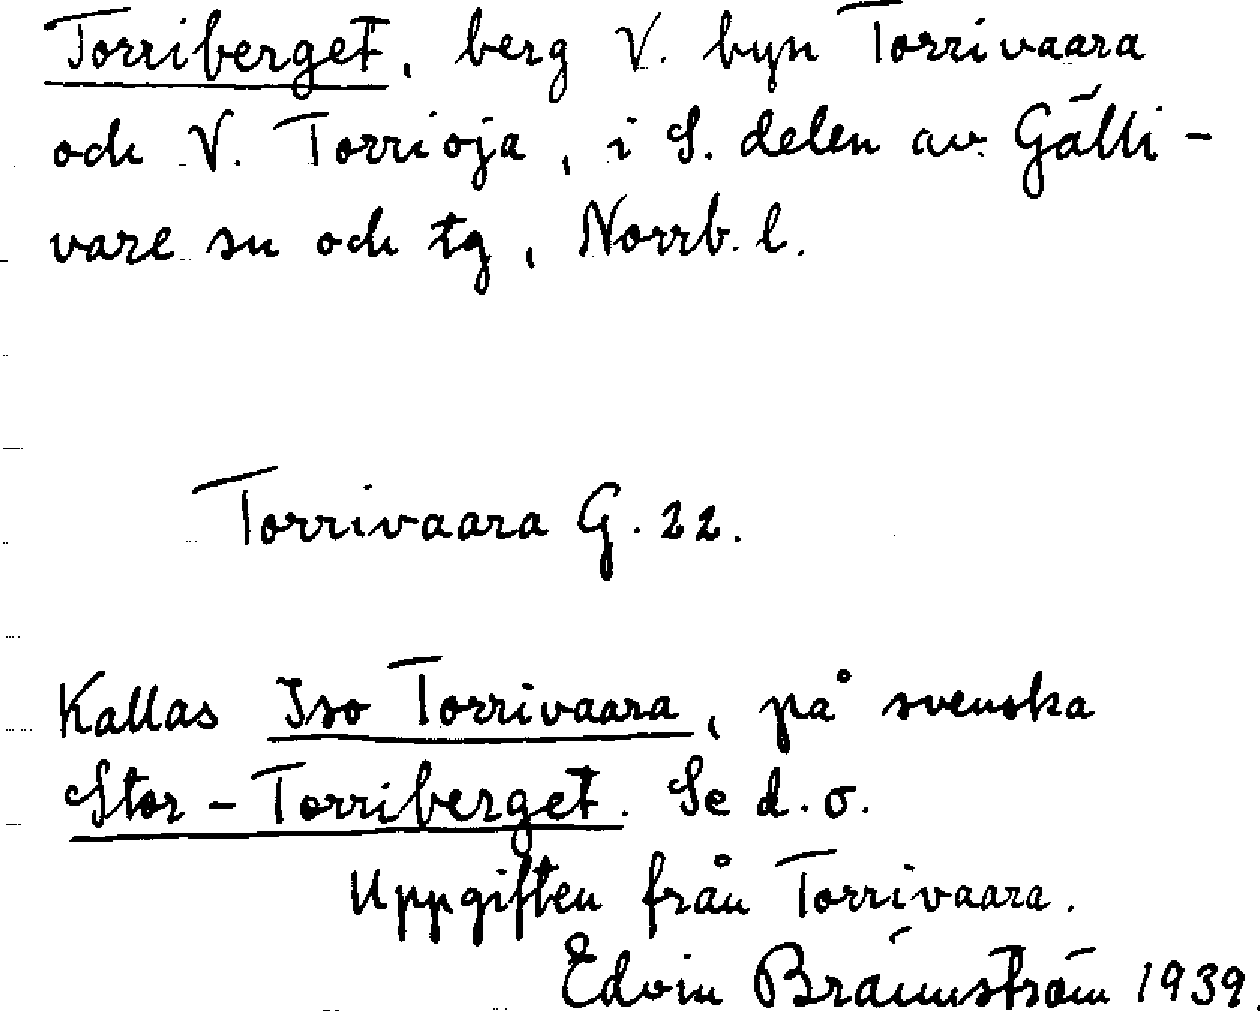 Torriberget, berg V. byn Torrivaara
och V. Torrioja, i S. delen av Gälli-
vare sn och tg, Norrb. l.
Torrivaara G. 22.
Kallas Iso Torrivaara, på svenska
Stor-Torriberget. Se d. o.
Uppgiften från Torrivaara.
Edvin Brännström 1939.